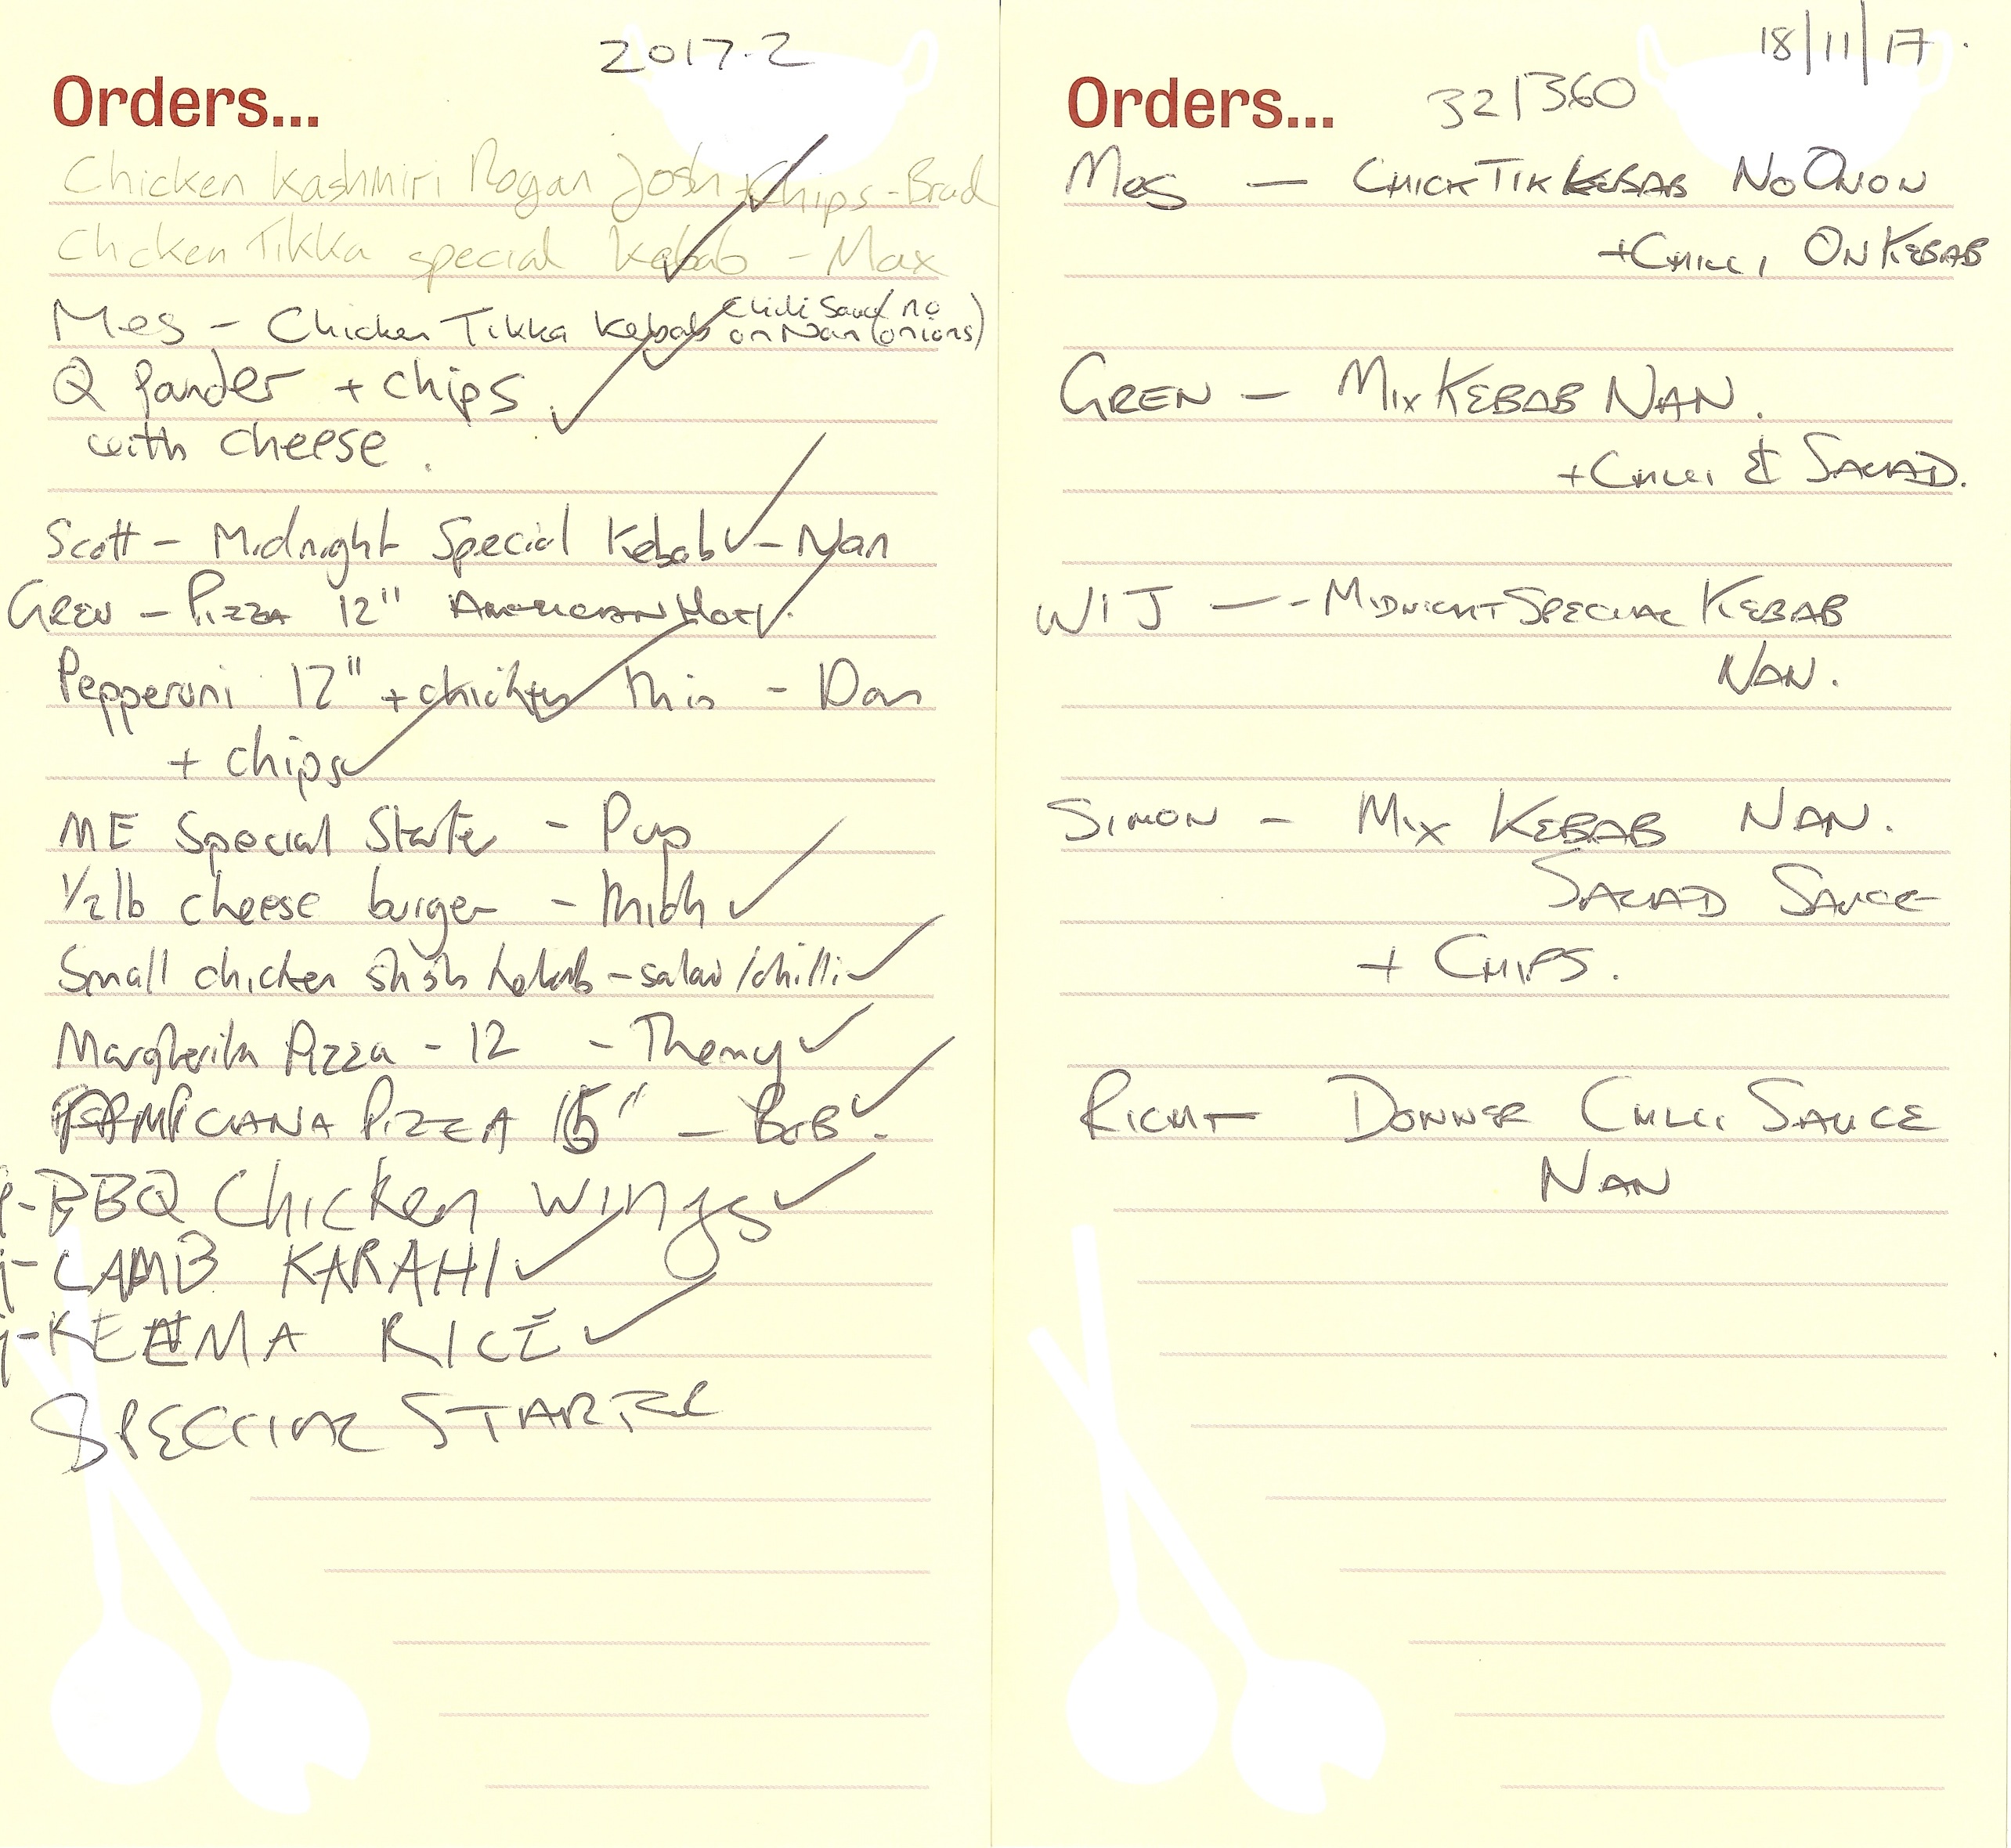 2017.2
Orders...
Chicken Kashmiri Rogan Josh + chips - Brad
Chcken Tikka special Kebab - Max
Mes - Chicken Tikka Kebab Chili Sauce/ no
on Nan (onions)
Q Pander + chips
with cheese.
Scott - Midnight Special Kebab - Nan
GREN - PIZZA 12" AMERICAN HOT.
Pepperoni 12" + chicken thin - Dan
+ chips
ME Special Starter - Pup
1/2 lb cheese burger - Mich
Small chicken shish kebab - salad/chilli
Margherita Pizza - 12 - Themy
PIZZA 15" - BOB.
- BBQ Chicken wings
- LAMB KARAHI
- KEEMA RICE
SPECIAL STARTER
18/11/17.
Orders... 321360
Mes - CHICK TIK KEBAB NO ONION
+ CHILLI ON KEBAB
GREN - MIX KEBAB NAN.
+ CHILLI & SALAD.
WIJ - - MIDNIGHT SPECIAL KEBAB
NAN.
SIMON - MIX KEBAB NAN.
SALAD SAUCE
+ CHIPS.
RICH - DONNER CHILLI SAUCE
NAN